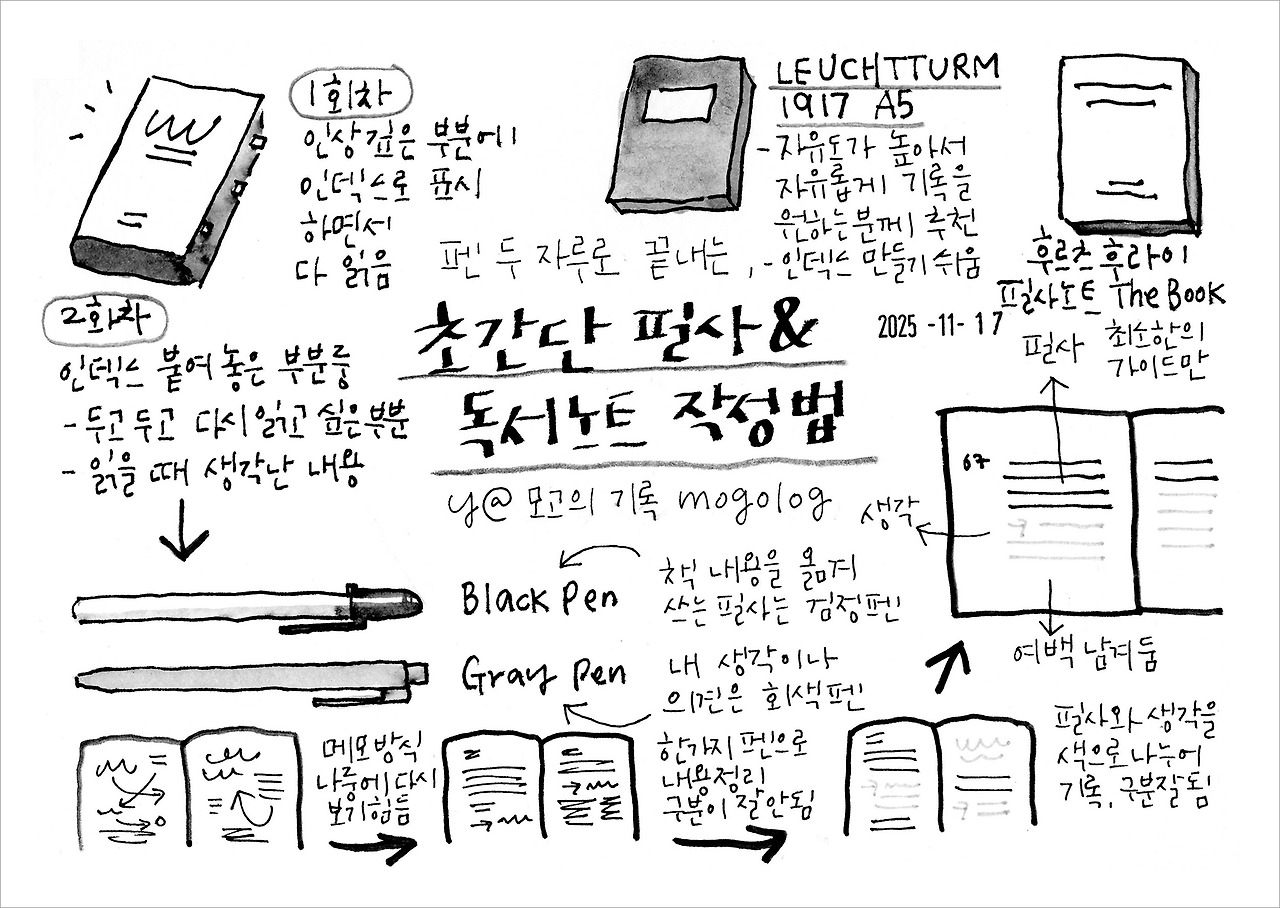 1회차
인상 깊은 부분에
인덱스로 표시
하면서
다 읽음
LEUCHTTURM
1917 A5
- 자유도가 높아서
자유롭게 기록을
원하는분께 추천
- 인덱스 만들기 쉬움
후르츠 후라이
필사노트 The Book
펜 두 자루로 끝내는,
초간단 필사&
독서노트 작성법
2025-11-17
by @ 모고의 기록 mogolog
2회차
인덱스 붙여 놓은 부분중
- 두고 두고 다시 읽고 싶은 부분
- 읽을 때 생각난 내용
필사
최소한의
가이드만
07
생각
여백 남겨둠
Black Pen
책 내용을 옮겨
쓰는 필사는 검정펜
Gray Pen
내 생각이나
의견은 회색펜
메모방식
나중에 다시
보기힘듬
한가지 펜으로
내용정리
구분이 잘 안됨
필사와 생각을
색으로 나누어
기록, 구분잘됨